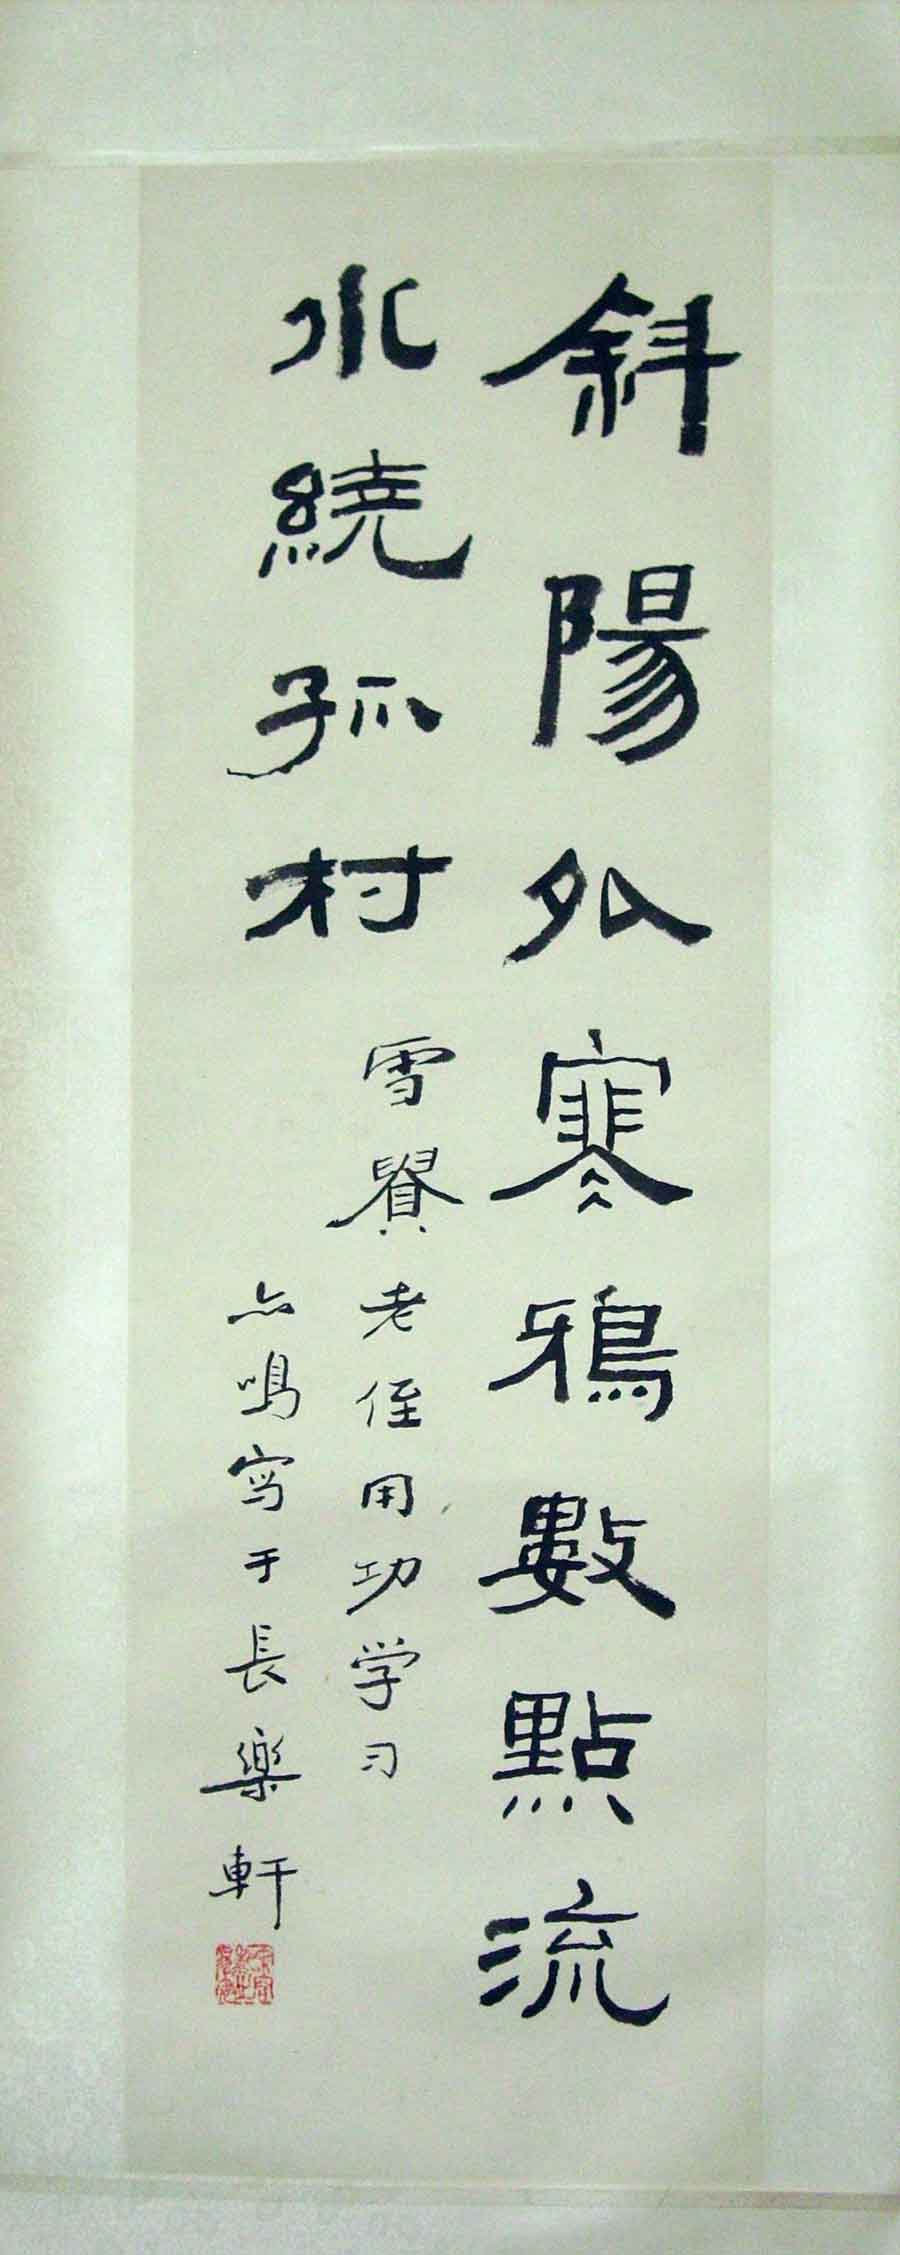 斜陽外寒鴉數點流
水繞孤村
雪老侄用功学习
亦鳴写于長樂軒